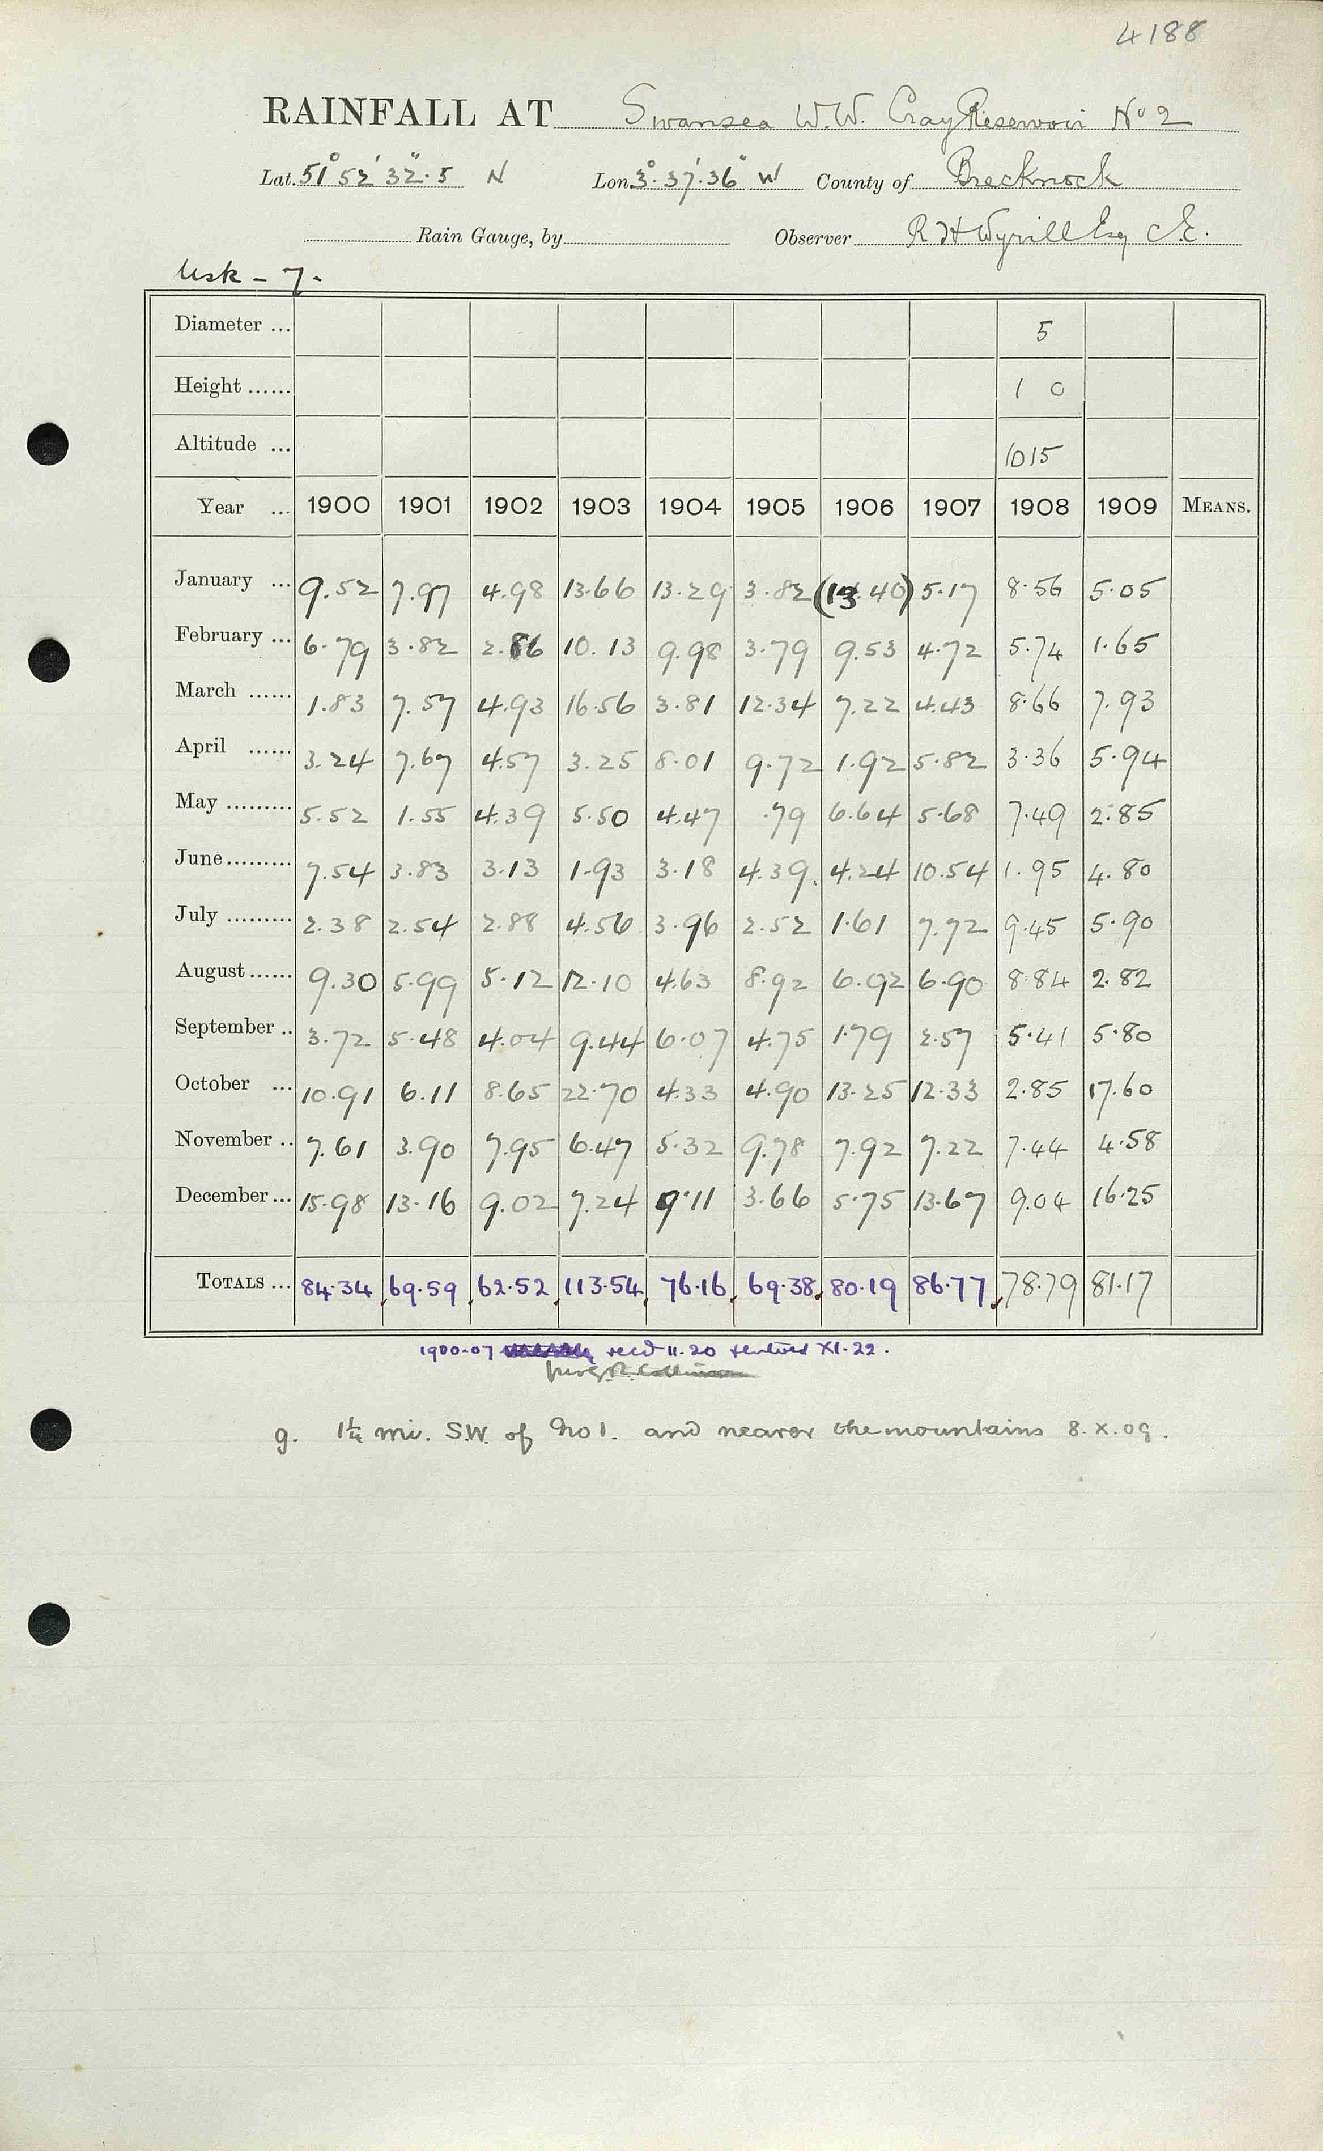 4188
RAINFALL AT Swansea W.W. Cray Reservoir No 2
Lat. 51° 52' 32".5 N Lon. 3°.37'.36" W County of Brecknock
Rain Gauge, by Observer R H Wyrill Esq C.E.
Usk - 7.
Diameter ... 5
Height ...... 1 0
Altitude ... 1015
Year ... 1900 1901 1902 1903 1904 1905 1906 1907 1908 1909 MEANS.
January ... 9.52 7.97 4.98 13.66 13.29 3.82 (13.40) 5.17 8.56 5.05
February ... 6.79 3.82 2.86 10.13 9.98 3.79 9.53 4.72 5.74 1.65
March ...... 1.83 7.57 4.93 16.56 3.81 12.34 7.22 4.43 8.66 7.93
April ...... 3.24 7.67 4.57 3.25 8.01 9.72 1.92 5.82 3.36 5.94
May ......... 5.52 1.55 4.39 5.50 4.47 .79 6.64 5.68 7.49 2.85
June ......... 7.54 3.83 3.13 1.93 3.18 4.39 4.24 10.54 1.95 4.80
July ......... 2.38 2.54 2.88 4.56 3.96 2.52 1.61 7.72 9.45 5.90
August ...... 9.30 5.99 5.12 12.10 4.63 8.92 6.92 6.90 8.84 2.82
September .. 3.72 5.48 4.04 9.44 6.07 4.75 1.79 2.57 5.41 5.80
October ... 10.91 6.11 8.65 22.70 4.33 4.90 13.25 12.33 2.85 17.60
November .. 7.61 3.90 7.95 6.47 5.32 9.78 7.92 7.22 7.44 4.58
December ... 15.98 13.16 9.02 7.24 9.11 3.66 5.75 13.67 9.04 16.25
TOTALS ... 84.34 69.59 62.52 113.54 76.16 69.38 80.19 86.77 78.79 81.17
1900-07 recd 11.20 XI.22.
g. 1¼ mi. S.W. of No 1. and nearer the mountains 8.X.09.